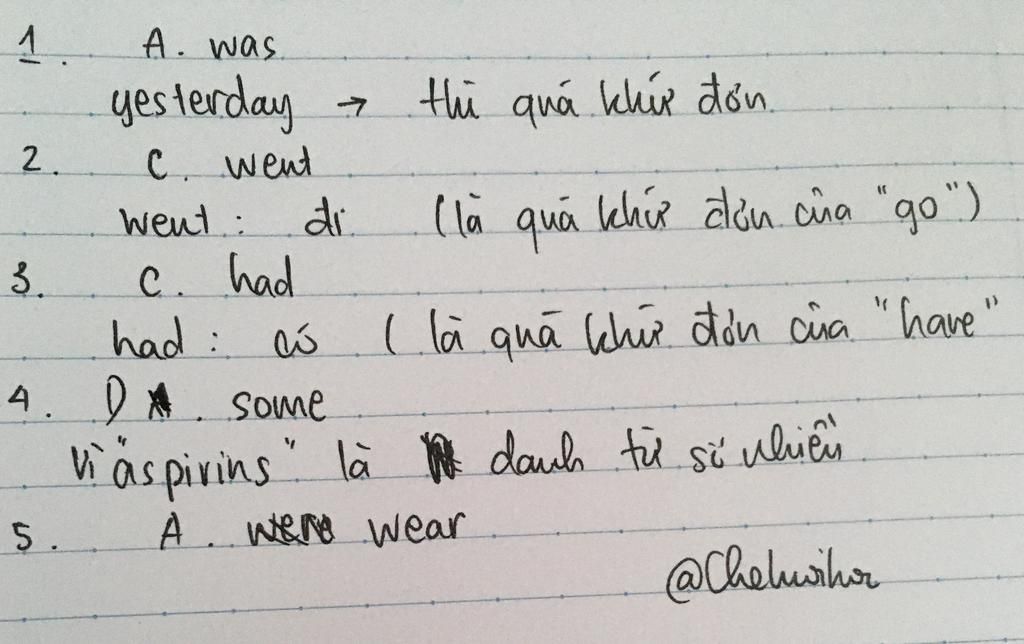 1. A. was
yesterday → thì quá khứ đơn
2. C. went
went : đi (là quá khứ đơn của "go")
3. C. had
had : có ( là quá khứ đơn của "have"
4. D . some
vì "aspirins" là danh từ số nhiều
5. A. wear